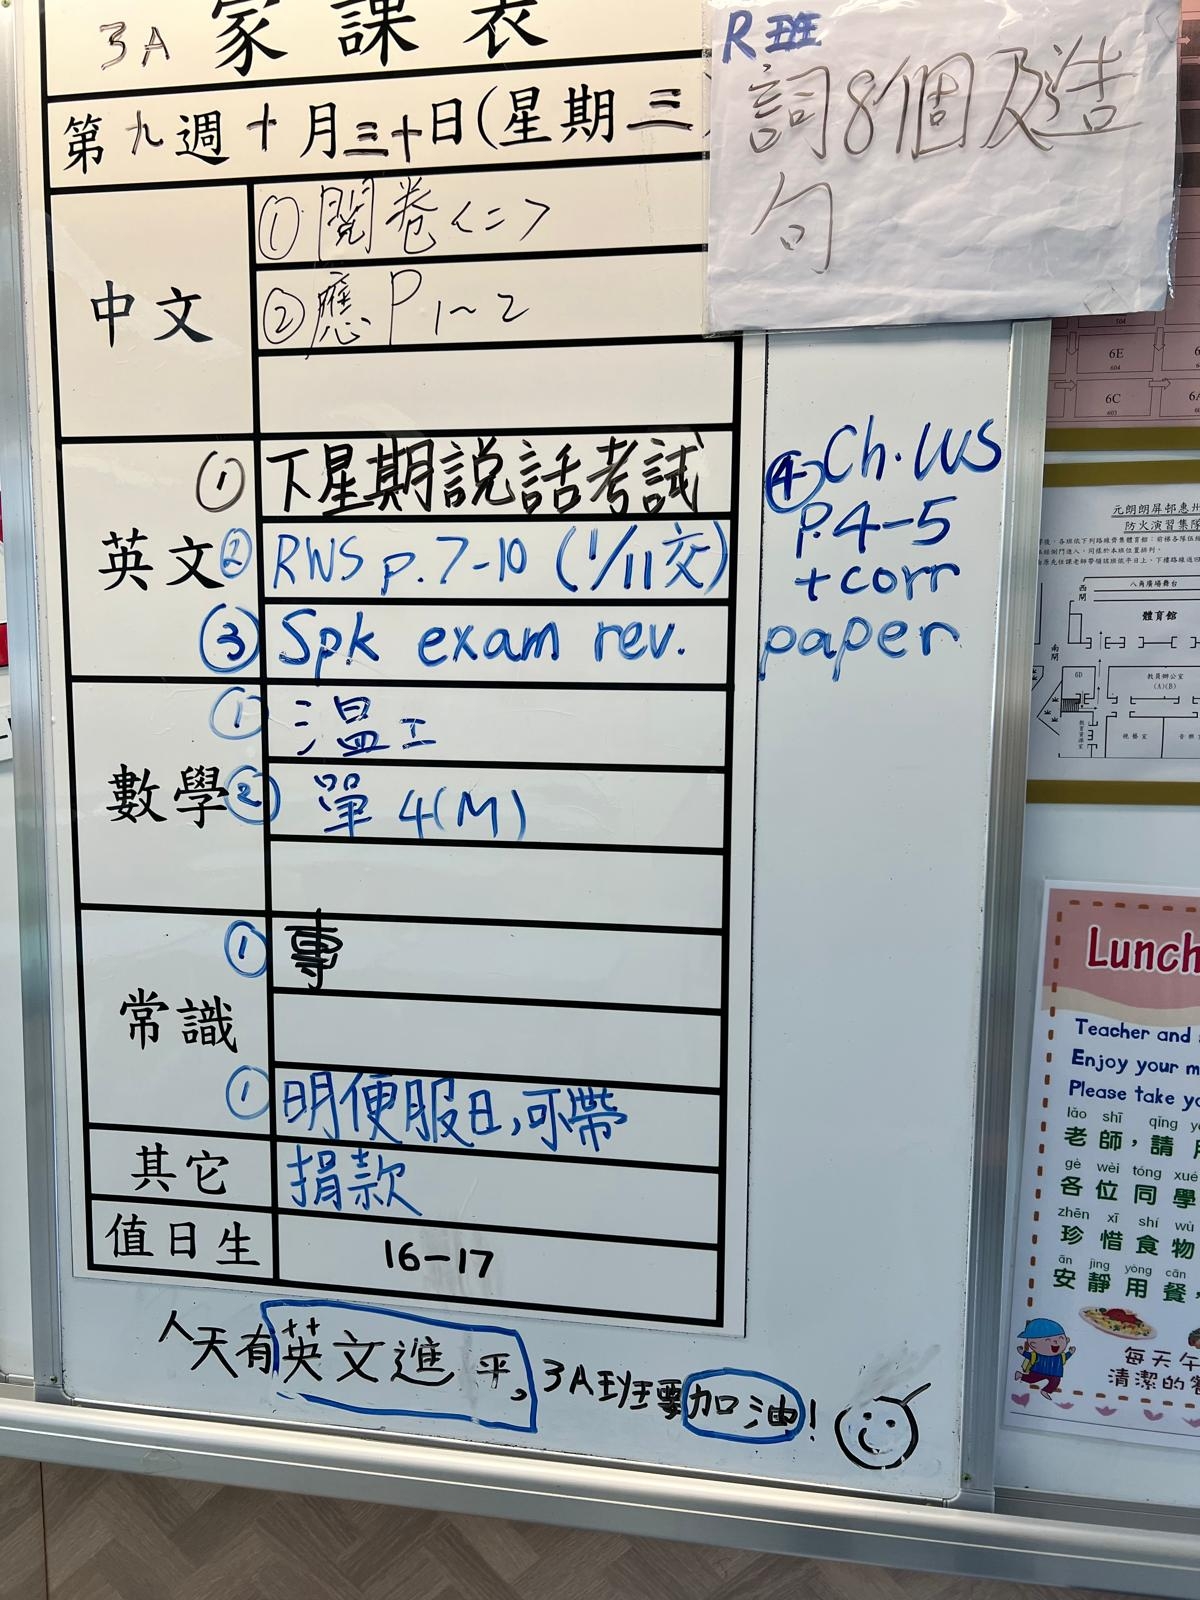 3A 家課表
第九週十月三十日(星期三
R班
詞8個及造
句
中文
① 閱卷<二>
② 應 P1~2
英文
① 下星期說話考試
② RWS p.7-10 (1/11交)
③ Spk exam rev.
④ Ch. WS
P.4-5
+corr
paper
數學
① 溫工
② 單4(M)
常識
① 專
① 明便服日,可帶
其它
捐款
值日生
16-17
天有英文進
3A班要加油!
6E
604
6C
603
元朗朗屏邨惠州
防火演習集隊
八角廣場舞台
體育館
西閘
南閘
6D
教員辦公室
(A)(B)
視藝室
Lunch
Teacher and
Enjoy your m
Please take yo
lǎo shī qīng
老師，請
gè wèi tóng xué
各位同學
zhēn xī shí wù
珍惜食物
ān jìng yòng cān
安靜用餐，
每天午
清潔的